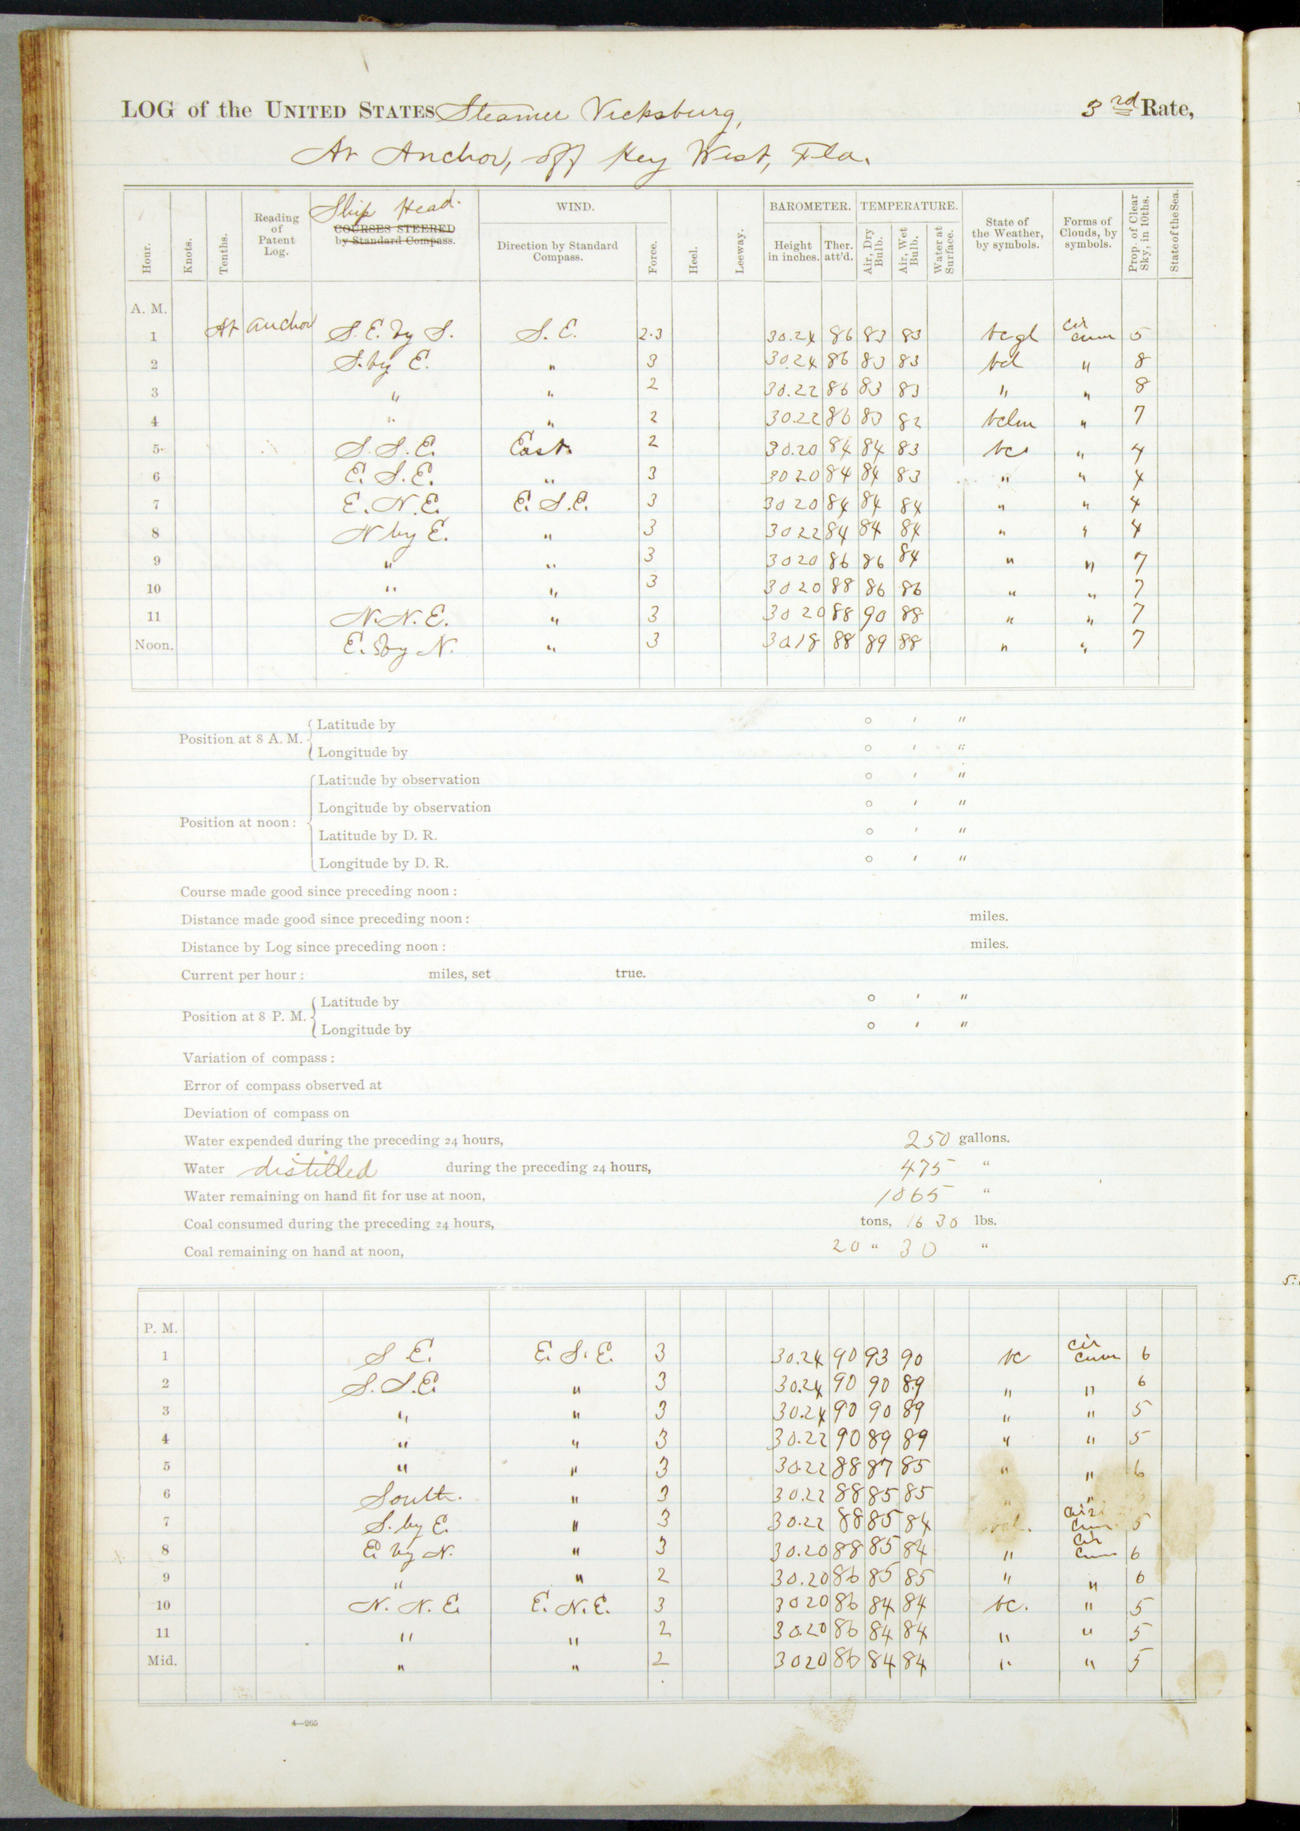 LOG of the UNITED STATES Steamer Vicksburg, 3rd Rate,
At Anchor, off Key West, Fla.
Hour. Knots. Tenths. Reading of Patent Log. Ship Head. COURSES STEERED by Standard Compass. WIND. Direction by Standard Compass. Force. Heel. Leeway. BAROMETER. Height in inches. Ther. att'd. TEMPERATURE. Air, Dry Bulb. Air, Wet Bulb. Water at Surface. State of the Weather, by symbols. Forms of Clouds, by symbols. Prop. of Clear Sky, in 10ths. State of the Sea.
A. M.
1 At anchor S.E. by S. S. E. 2-3 30.24 86 83 83 bcgl cir cum 5
2 S. by E. " 3 30.24 86 83 83 bcl " 8
3 " " 2 30.22 86 83 83 " " 8
4 " " 2 30.22 86 83 82 bclm " 7
5 S. S. E. East. 2 30.20 84 84 83 bc "
6 E. S. E. " 3 30 20 84 84 83 " " 4
7 E. N. E. E. S. E. 3 30 20 84 84 84 " " 4
8 N by E. " 3 30 22 84 84 84 " " 4
9 " " 3 30 20 86 86 84 " " 7
10 " " 3 30 20 88 86 86 " " 7
11 N. N. E. " 3 30 20 88 90 88 " " 7
Noon. E. by N. " 3 30 18 88 89 88 " " 7
Position at 8 A. M. Latitude by ° ' "
Longitude by ° ' "
Position at noon: Latitude by observation ° ' "
Longitude by observation ° ' "
Latitude by D. R. ° ' "
Longitude by D. R. ° ' "
Course made good since preceding noon:
Distance made good since preceding noon: miles.
Distance by Log since preceding noon: miles.
Current per hour: miles, set true.
Position at 8 P. M. Latitude by ° ' "
Longitude by ° ' "
Variation of compass:
Error of compass observed at
Deviation of compass on
Water expended during the preceding 24 hours, 250 gallons.
Water distilled during the preceding 24 hours, 475 "
Water remaining on hand fit for use at noon, 1065 "
Coal consumed during the preceding 24 hours, tons, 1630 lbs.
Coal remaining on hand at noon, 20 " 30 "
P. M.
1 S E. E. S. E. 3 30.24 90 93 90 bc cir cum 6
2 S. S. E. " 3 30.24 90 90 89 " " 6
3 " " 3 30.24 90 90 89 " " 5
4 " " 3 30.22 90 89 89 " " 5
5 " " 3 30.22 88 87 85 " " 6
6 South. " 3 30.22 88 85 85 " "
7 S. by E. " 3 30.22 88 85 84 cir cum 5
8 E. by N. " 3 30.20 88 85 84 " cir cum 6
9 " " 2 30.20 86 85 85 " " 6
10 N. N. E. E. N. E. 3 30 20 86 84 84 bc. " 5
11 " " 2 30.20 86 84 84 " " 5
Mid. " " 2 30 20 86 84 84 " " 5
4—265